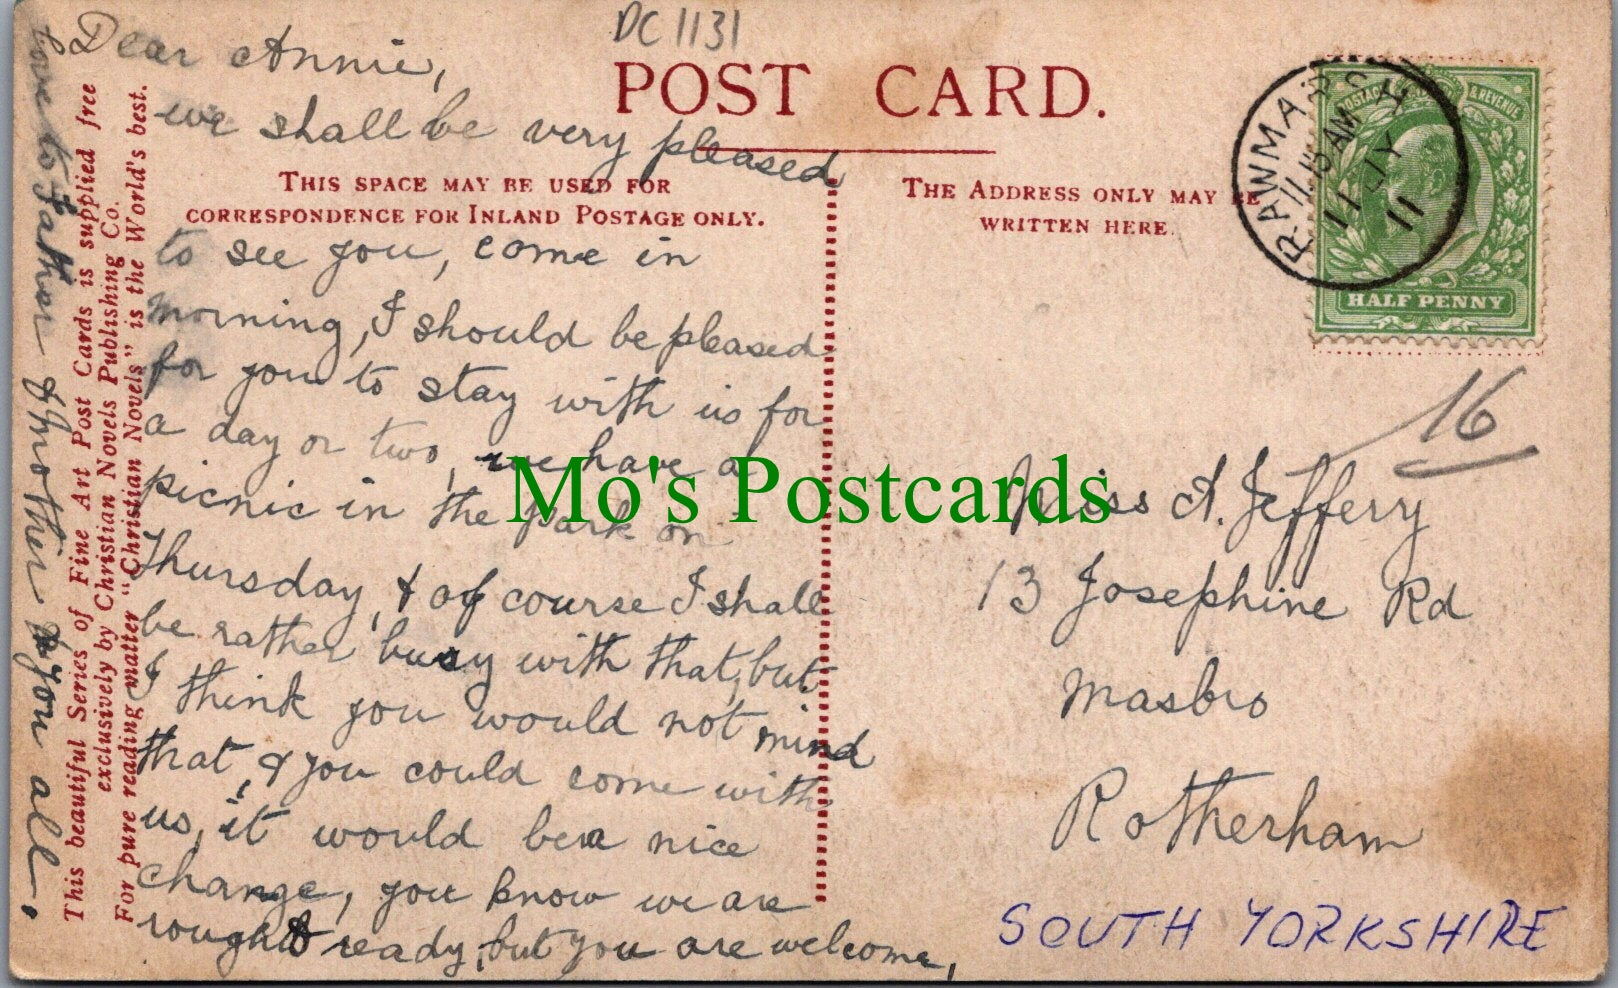 DC 1131
POST CARD.
THIS SPACE MAY BE USED FOR
CORRESPONDENCE FOR INLAND POSTAGE ONLY.
THE ADDRESS ONLY MAY BE
WRITTEN HERE.
Dear Annie,
we shall be very pleased
to see you, come in
morning, I should be pleased
for you to stay with us for
a day or two, we have a
picnic in the park on
Thursday, & of course I shall
be rather busy with that, but
I think you would not mind
that, & you could come with
us, it would be a nice
change, you know we are
rough & ready, but you are welcome,
Love to Father & Mother & you all.
This beautiful Series of Fine Art Post Cards is supplied free
exclusively by Christian Novels Publishing Co.
For pure reading matter "Christian Novels" is the World's best.
RAWMARSH
11.15 AM
11 JY
11
POSTAGE & REVENUE
HALF PENNY
16
Miss A. Jeffery
13 Josephine Rd
Masbro
Rotherham
SOUTH YORKSHIRE
Mo's Postcards